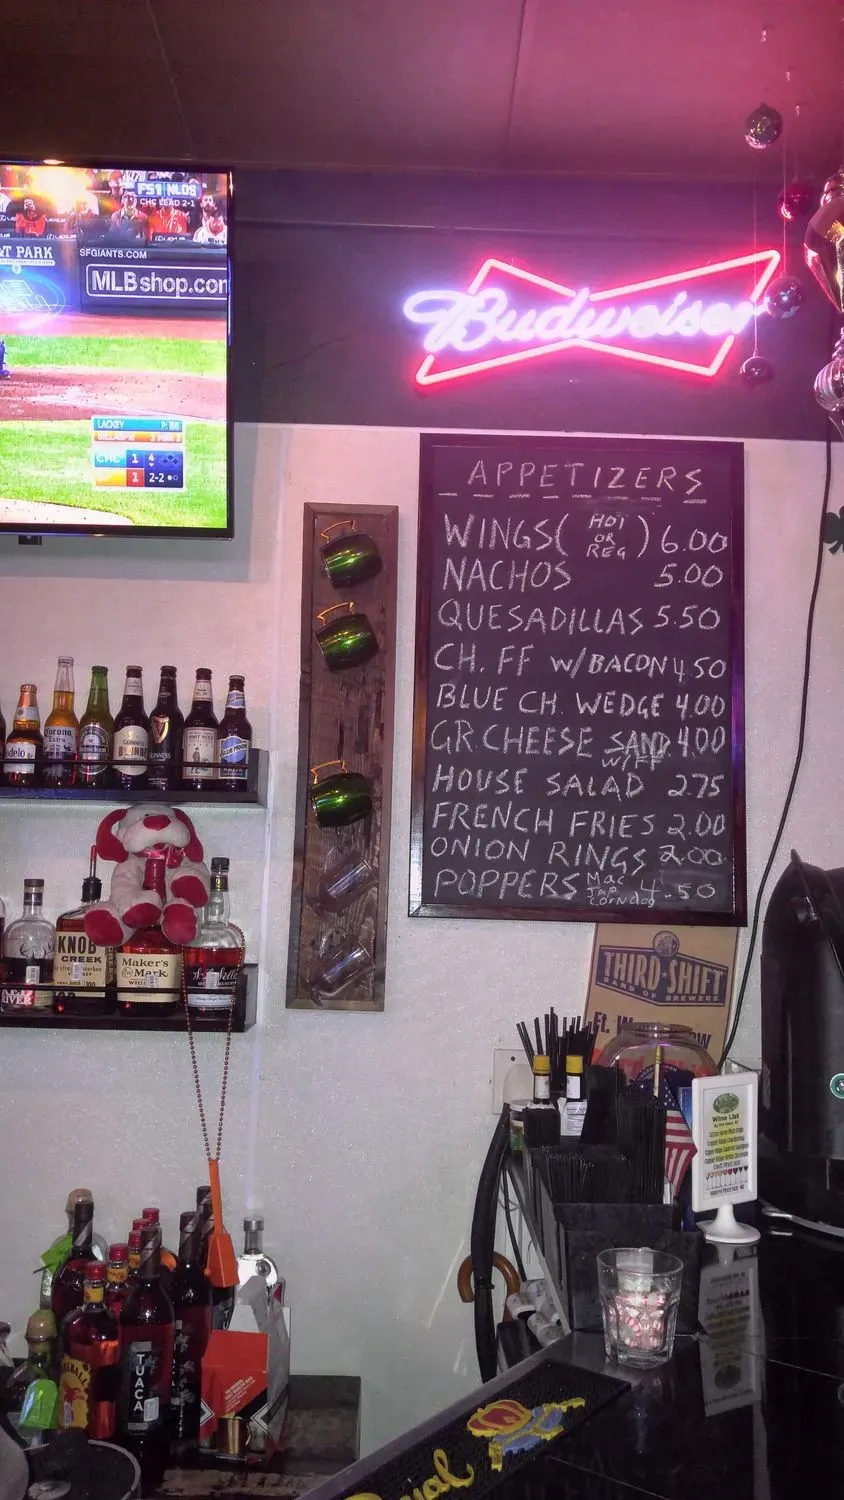 FS1 NLDS
CHC LEAD 2-1
T PARK
SFGIANTS.COM
MLBshop.com
LACKEY
CHC 1 4
1 2-2
Budweiser
APPETIZERS
WINGS( HOT OR REG ) 6.00
NACHOS 5.00
QUESADILLAS 5.50
CH. FF W/BACON 4.50
BLUE CH. WEDGE 4.00
GR. CHEESE SAND W/FF 4.00
HOUSE SALAD 2.75
FRENCH FRIES 2.00
ONION RINGS 2.00
POPPERS Mac Jap corndog 4.50
delo
Corona
Extra
Heineken
GUINNESS
BLONDE
GUINNESS
BLUE MOON
KNOB
CREEK
Maker's
Mark
RIVER
THIRD SHIFT
BAND OF BREWERS
Ft. W
Wine List
TUACA
FIREBALL